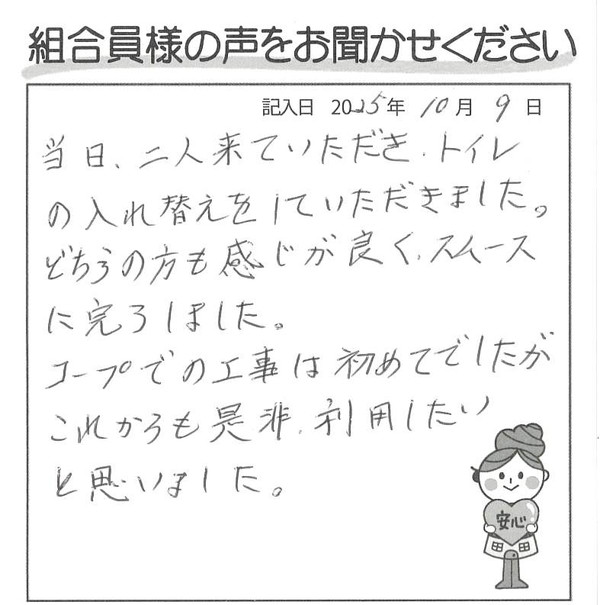 組合員様の声をお聞かせください
記入日 2025年 10月 9日
当日、二人来ていただき、トイレ
の入れ替えをしていただきました。
どちらの方も感じが良く、スムース
に完了しました。
コープでの工事は初めてでしたが
これからも是非、利用したい
と思いました。
安心